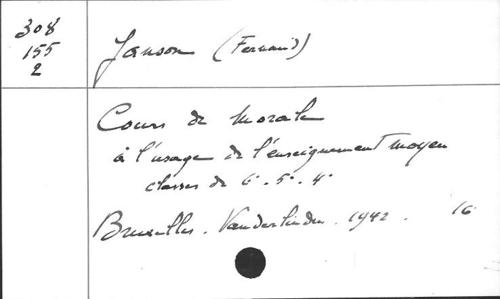 308
155
2
Janson (Fernand)
Cours de Morale
à l'usage de l'enseignement moyen
classes de 6e. 5e. 4e
Bruxelles. Vanderlinden. 1942. 16